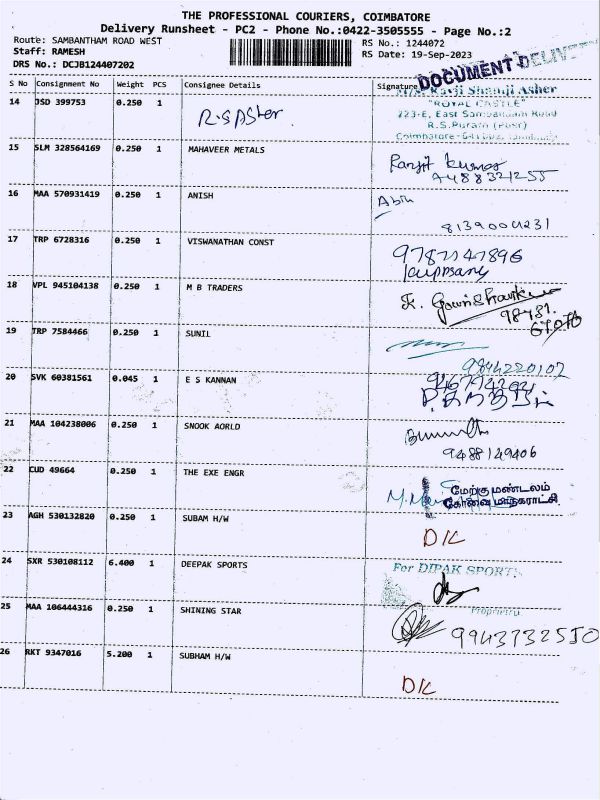 THE PROFESSIONAL COURIERS, COIMBATORE
Delivery Runsheet - PC2 - Phone No.:0422-3505555 - Page No.:2
Route: SAMBANTHAM ROAD WEST
Staff: RAMESH
DRS No.: DCJB124407202
RS No.: 1244072
RS Date: 19-Sep-2023
DOCUMENT DELIVE
S No Consignment No Weight PCS Consignee Details Signature
14 JSD 399753 0.250 1
M/s Ravji Shamji Asher
"ROYAL CASTLE"
223-E, East Sambandam Road
R.S.Puram (Post)
15 SLM 328564169 0.250 1 MAHAVEER METALS
Ranjit Kumar
16 MAA 570931419 0.250 1 ANISH
17 TRP 6728316 0.250 1 VISWANATHAN CONST
9787147896
18 VPL 945104138 0.250 1 M B TRADERS
19 TRP 7584466 0.250 1 SUNIL
9894220107
20 SVK 60381561 0.045 1 E S KANNAN
21 MAA 104238006 0.250 1 SNOOK AORLD
9488149406
22 CUD 49664 0.250 1 THE EXE ENGR
மேற்கு மண்டலம்
கோவை மாநகராட்சி
23 AGH 530132820 0.250 1 SUBAM H/W
D/L
24 SXR 530108112 6.400 1 DEEPAK SPORTS
For DIPAK SPORTS
25 MAA 106444316 0.250 1 SHINING STAR
26 RKT 9347016 5.200 1 SUBHAM H/W
D/L